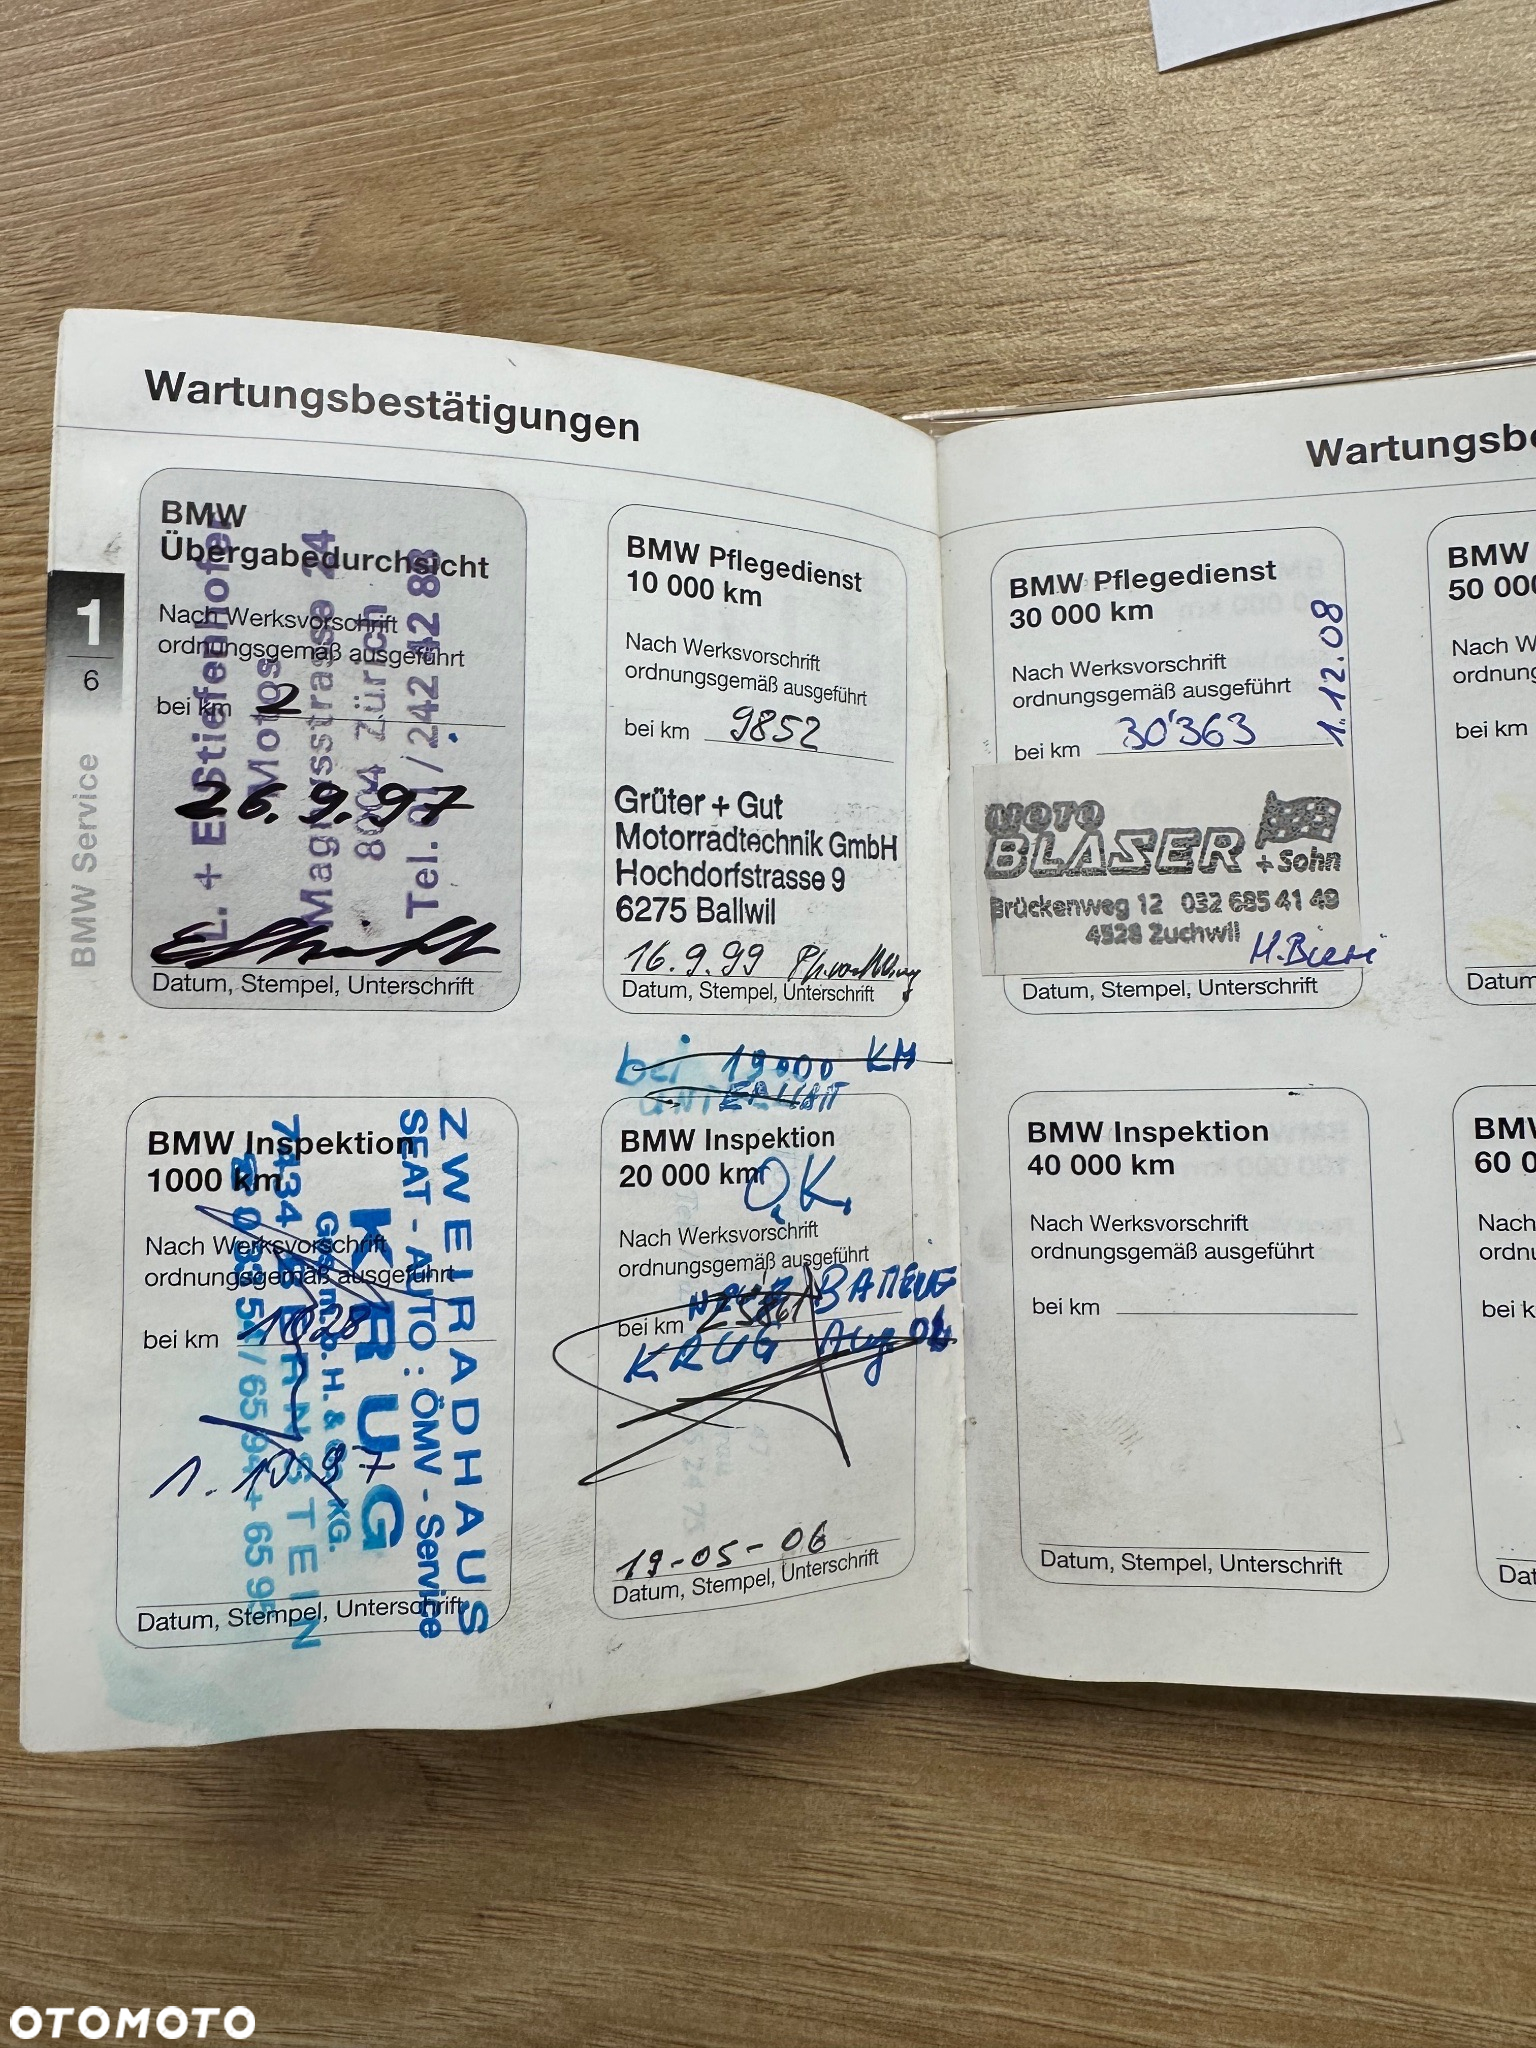 Wartungsbestätigungen
BMW
Übergabedurchsicht
Nach Werksvorschrift
ordnungsgemäß ausgeführt
bei km 2
L. + E. Stiefenhofer
Motos
Magnusstrasse 24
8004 Zürich
Tel. 01 / 242 42 88
26.9.97
Datum, Stempel, Unterschrift
1
6
BMW Service
BMW Inspektion
1000 km
Nach Werksvorschrift
ordnungsgemäß ausgeführt
bei km 1028
ZWEIRADHAUS
SEAT - AUTO : ÖMV - Service
KRUG
Ges. m. b. H. & Co. KG.
7434 BERNSTEIN
1. 10. 97
Datum, Stempel, Unterschrift
BMW Pflegedienst
10 000 km
Nach Werksvorschrift
ordnungsgemäß ausgeführt
bei km 9852
Grüter + Gut
Motorradtechnik GmbH
Hochdorfstrasse 9
6275 Ballwil
16.9.99
Datum, Stempel, Unterschrift
bei 19000 KM
BMW Inspektion
20 000 km
O.K.
Nach Werksvorschrift
ordnungsgemäß ausgeführt
bei km
KRUG Aug.
19-05-06
Datum, Stempel, Unterschrift
Wartungsbe
BMW Pflegedienst
30 000 km
Nach Werksvorschrift
ordnungsgemäß ausgeführt
bei km 30'363
1.12.08
MOTO
BLASER + Sohn
Brückenweg 12 032 685 41 49
4528 Zuchwil
Datum, Stempel, Unterschrift
BMW Inspektion
40 000 km
Nach Werksvorschrift
ordnungsgemäß ausgeführt
bei km
Datum, Stempel, Unterschrift
BMW
50 000
Nach W
ordnung
bei km
Datum
BMW
60 0
Nach
ordnu
bei k
Dat
OTOMOTO